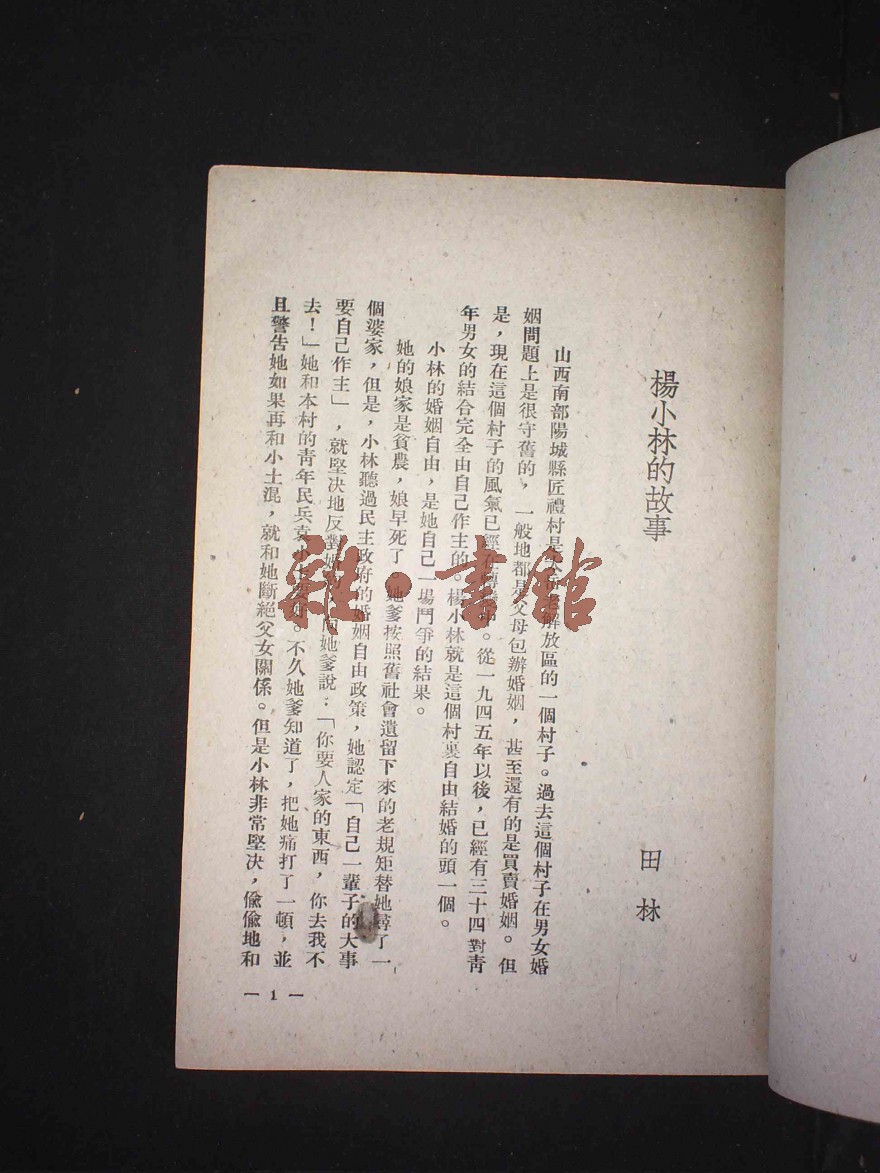 楊小林的故事
田林
山西南部陽城縣匠禮村是解放區的一個村子。過去這個村子在男女婚
姻問題上是很守舊的，一般地都是父母包辦婚姻，甚至還有的是買賣婚姻。但
是，現在這個村子的風氣已經在轉變。從一九四五年以後，已經有三十四對靑
年男女的結合完全由自己作主的。楊小林就是這個村裏自由結婚的頭一個。
小林的婚姻自由，是她自己一場鬥爭的結果。
她的娘家是貧農，娘早死了。她爹按照舊社會遺留下來的老規矩替她尋了一
個婆家，但是，小林聽過民主政府的婚姻自由政策，她認定「自己一輩子的大事
要自己作主」，就堅决地反對她爹說：「你要人家的東西，你去我不
去！」她和本村的靑年民兵袁小土。不久她爹知道了，把她痛打了一頓，並
且警告她如果再和小土混，就和她斷絕父女關係。但是小林非常堅决，偷偷地和
— 1 —
雜·書館